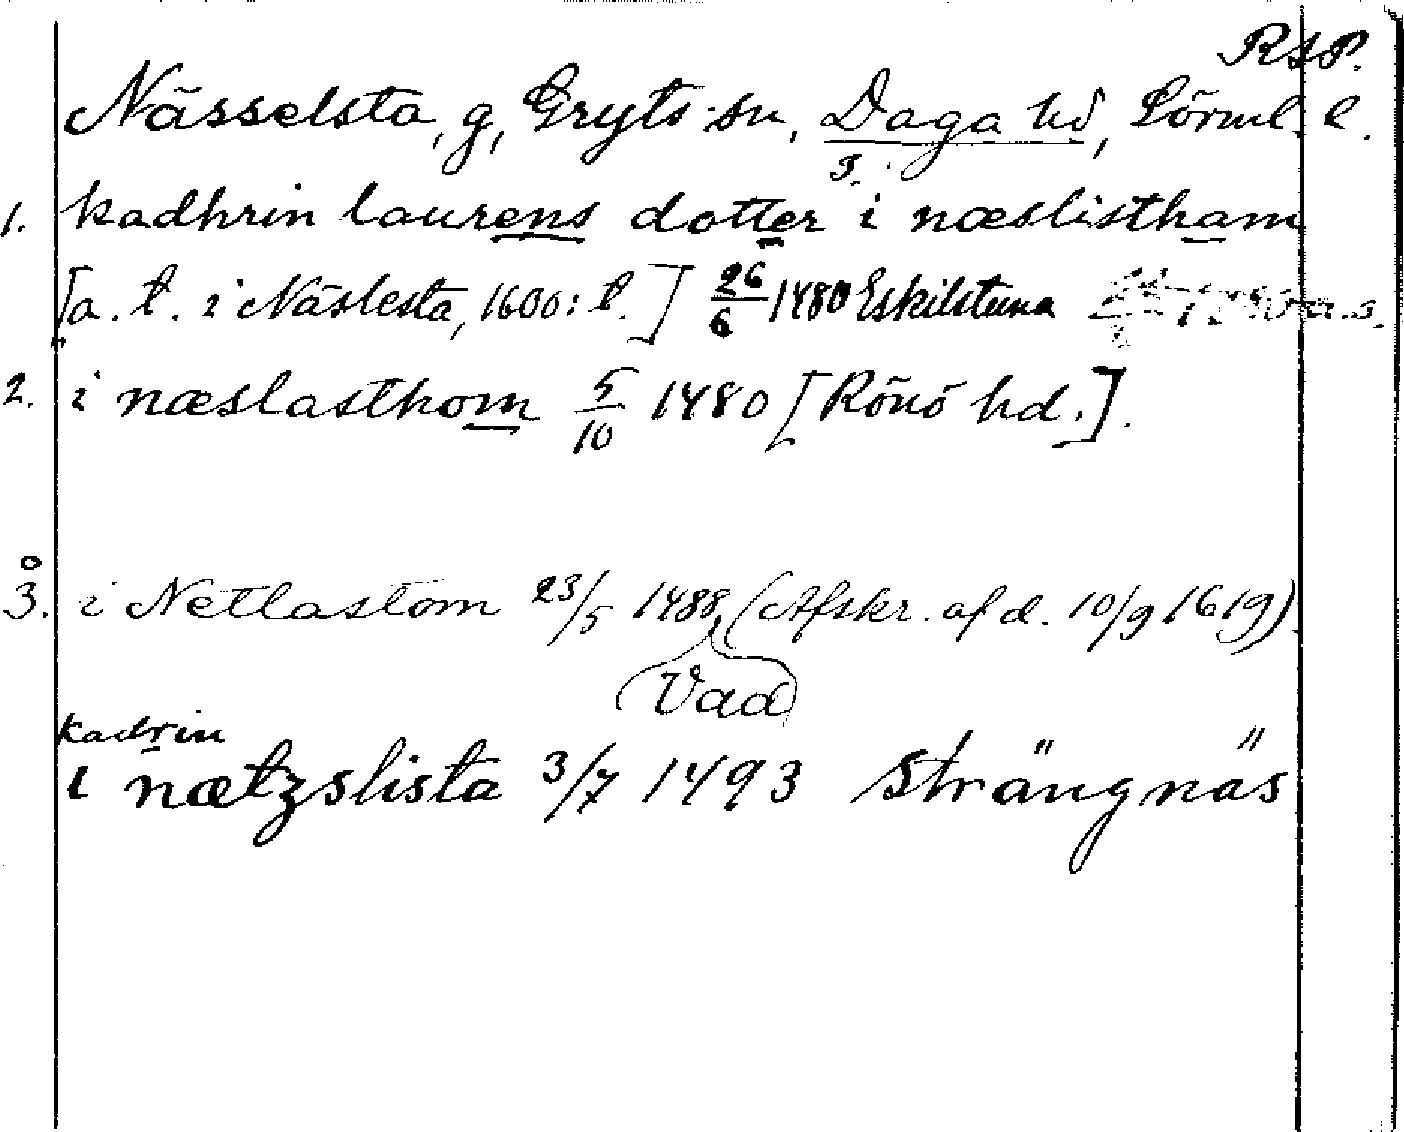 RSP.
Nässelsta, g, Gryts sn, Daga hd, Sörml. l.
1. kadhrin laurens dotter i næslistham
[a. t. i Näslesta, 1600: t.] 26/6 1480 Eskilstuna
2. i næslasthom 5/10 1480 [Rönö hd.].
3. i Netlastom 23/5 1488 (Afskr. af d. 10/9 1619)
Vad
kadrin
i nætzslista 3/7 1493 Strängnäs